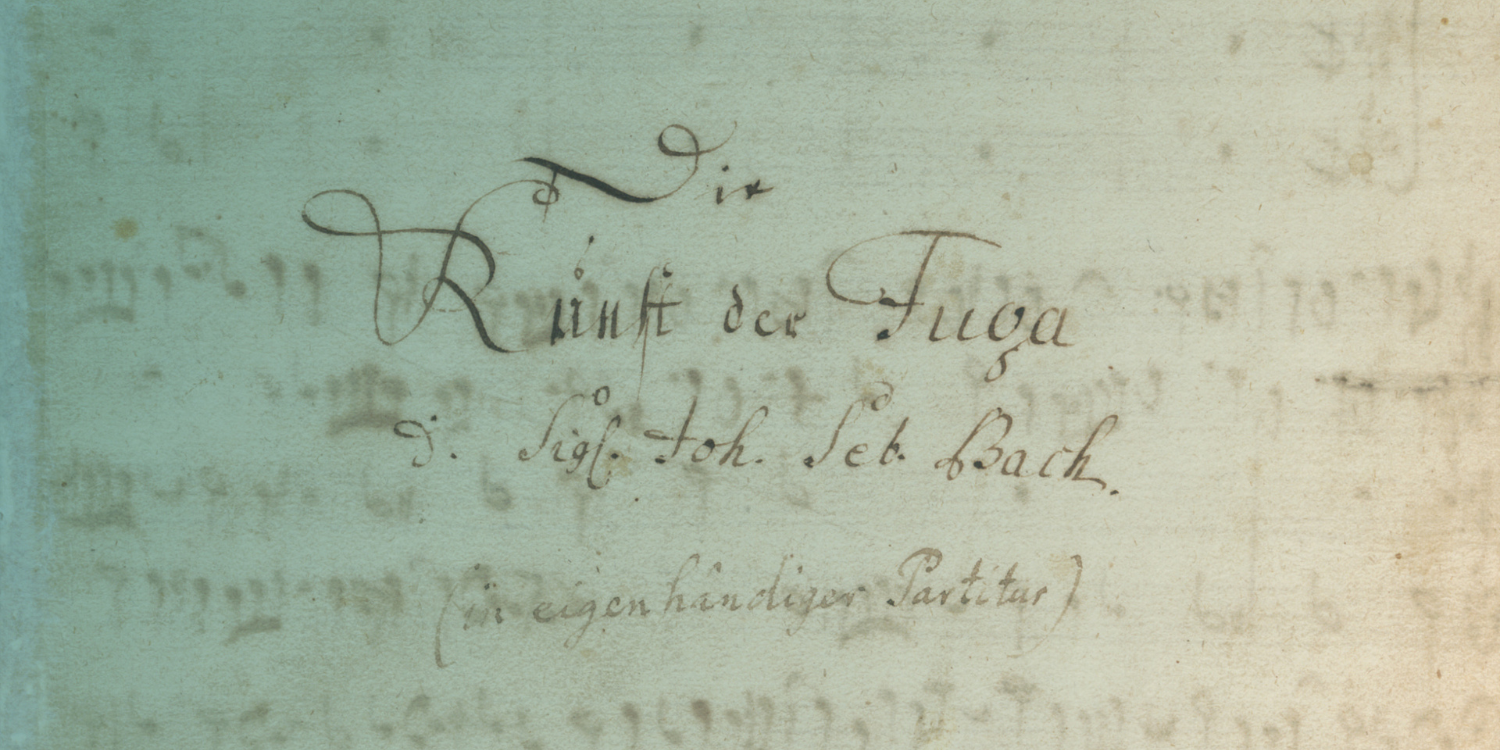 Die
Kunst der Fuga
d. Sig. Joh. Seb. Bach.
(in eigenhändiger Partitur)